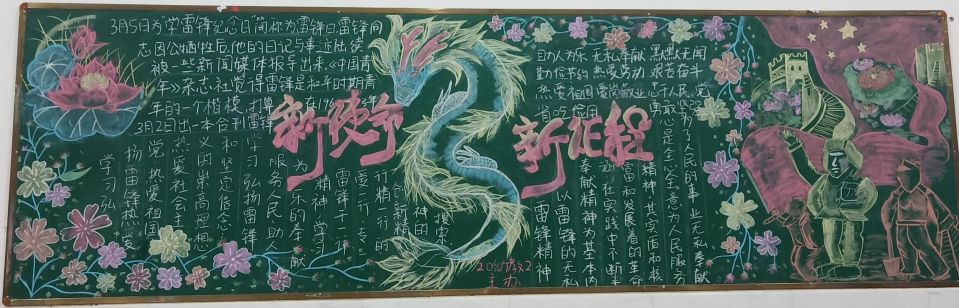 3月5日为"学雷锋纪念日"简称为雷锋日雷锋同
志因公牺牲后他的日记与事迹陆续
被一些新闻媒体报导出来,《中国青
年》杂志社觉得雷锋是和平时期青
年的一个楷模,打算 在1963年
3月2日出一本合刊雷锋
新使命
新征程
学习弘
扬雷锋热爱
党热爱祖国
热爱社会主
义的崇高理想
和坚定信念
学习弘扬雷锋
服务人民助人
为乐的奉献
精神学习
雷锋干一行
爱一行专一
行精一行的
创新精
神的
搜索
助人为乐 无私奉献 默默无闻
勤俭节约 热爱劳动 艰苦奋斗
为了人民的事业无私奉献
心是全心全意为人民服务
精神,其实质和核
富和发展着的革命
涵在实践中不断丰
奉献精神为基本内
以雷锋的无私
雷锋精神
20幼教2
主办